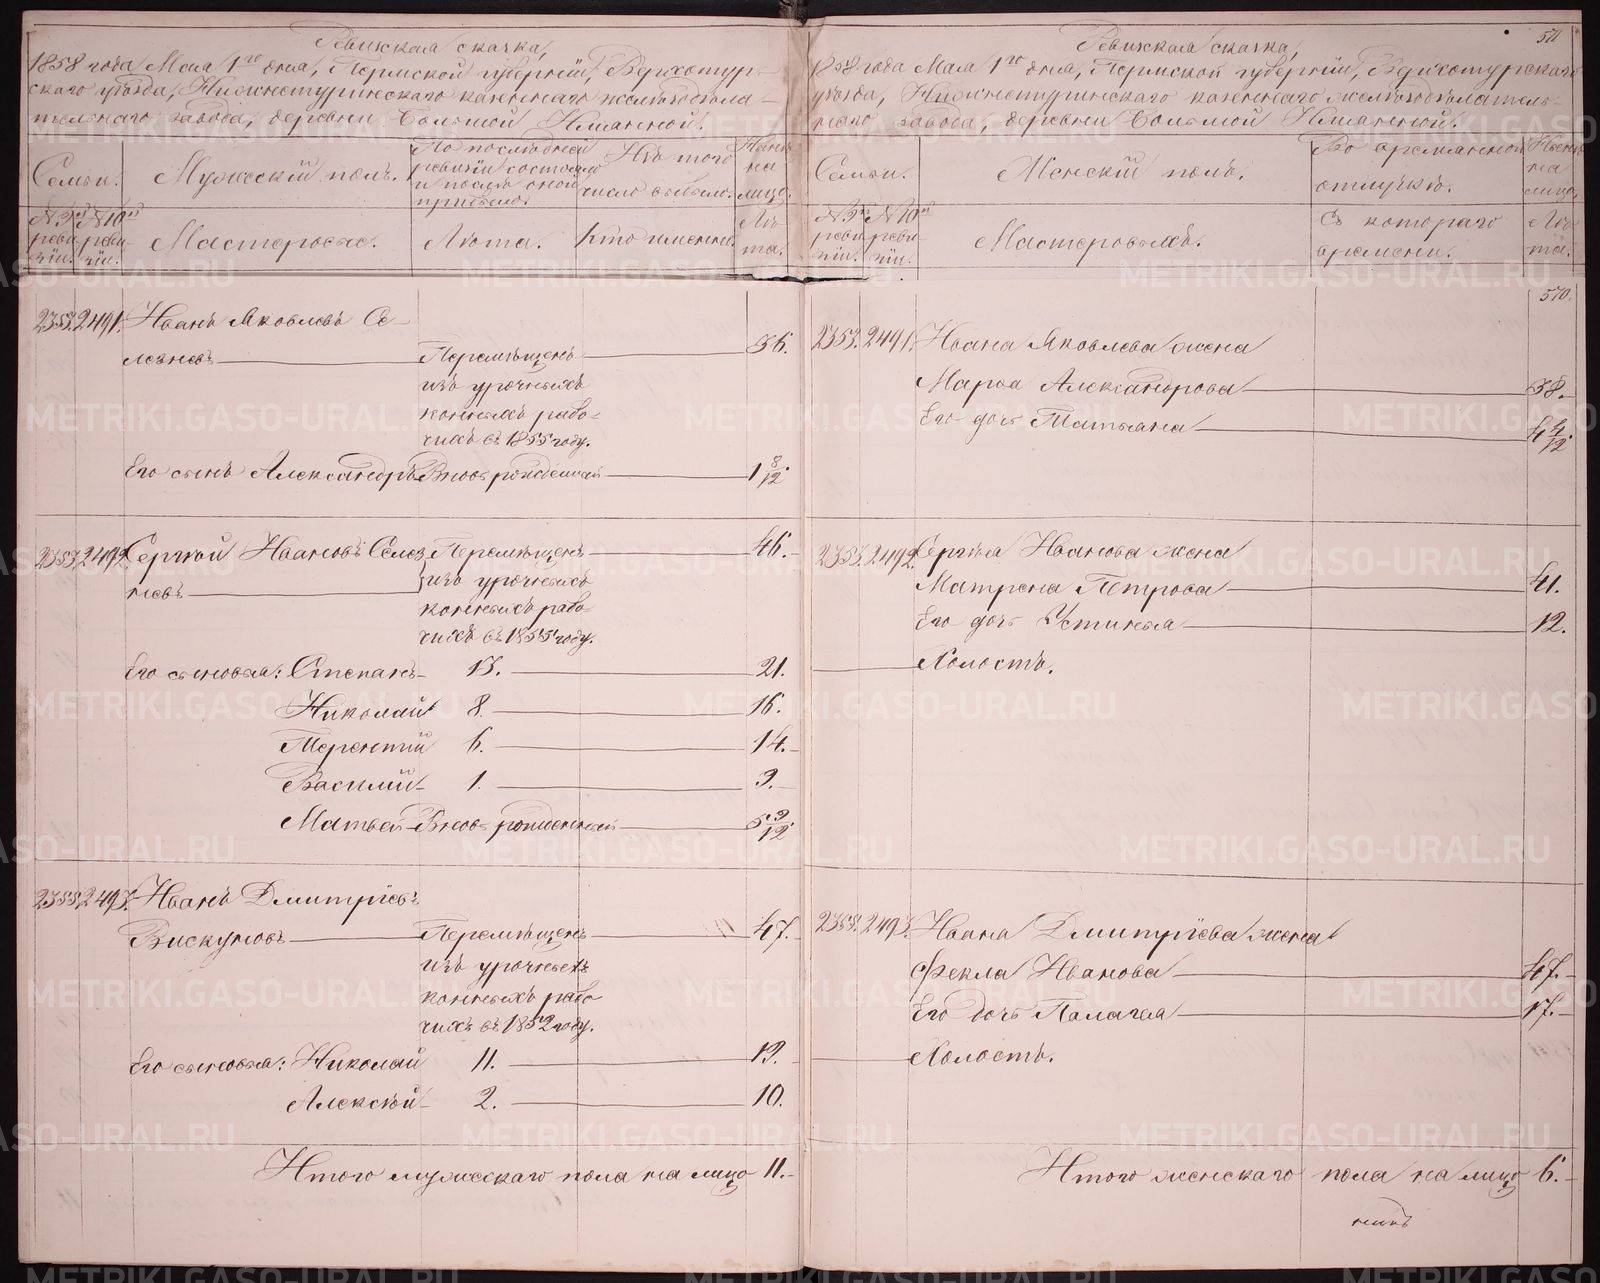 Ревижская сказка,
1858 года Мая 1го дня, Пермской губерніи, Верхотур-
скаго уѣзда, Нижнетуринскаго казеннаго желѣзодѣла-
тельнаго завода, деревни Большой Именной.
Семьи.
Мужескій полъ.
По послѣдней
ревизіи состояло
и послѣ оной
прибыло.
Изъ того
число выбыло.
Нынѣ
на
лицо.
№ 9й
реви-
зіи.
№ 10й
реви-
зіи.
Мастеровые.
Лѣта.
Кто именно.
Лѣ-
та.
2353. 2491. Иванъ Яковлевъ Се-
лезневъ Перемѣщенъ 56.
изъ урочныхъ
конныхъ рабо-
чихъ въ 1855 году.
Его сынъ Александръ Вновь рожденный 1 8/12.
2353. 2492. Сергѣй Ивановъ Селез- Перемѣщенъ 46.
невъ изъ урочныхъ
конныхъ рабо-
чихъ въ 1855 году.
Его сыновья: Степанъ 13. 21.
Николай 8. 16.
Терентий 6. 14.
Василий 1. 9.
Матвей Вновь рожденный 5 9/12
2353. 2493. Иванъ Дмитріевъ
Вискуновъ Перемѣщенъ 47.
изъ урочныхъ
конныхъ рабо-
чихъ въ 1852 году.
Его сыновья: Николай 11. 19.
Алексѣй 2. 10.
Итого мужескаго пола на лицо 11.
571
Ревижская сказка,
1858 года Мая 1го дня, Пермской губерніи, Верхотурскаго
уѣзда, Нижнетуринскаго казеннаго желѣзодѣлатель-
наго завода, деревни Большой Именной.
Семьи.
Женскій полъ.
Во временной
отлучкѣ.
Нынѣ
на
лицо.
№ 9й
реви-
зіи.
№ 10й
реви-
зіи.
Мастеровыхъ.
Съ котораго
времени.
Лѣ-
та.
570.
2353. 2491. Ивана Яковлева жена
Марѳа Александрова 58.
Его дочь Татьяна 4 4/12
2353. 2492. Сергѣя Иванова жена
Матрена Петрова 41.
Его дочь Устинья 12.
Холостъ.
2353. 2493. Ивана Дмитріева жена
Фекла Иванова 47.
Его дочь Палагея 17.
Холостъ.
Итого женскаго пола на лицо 6.
METRIKI.GASO-URAL.RU